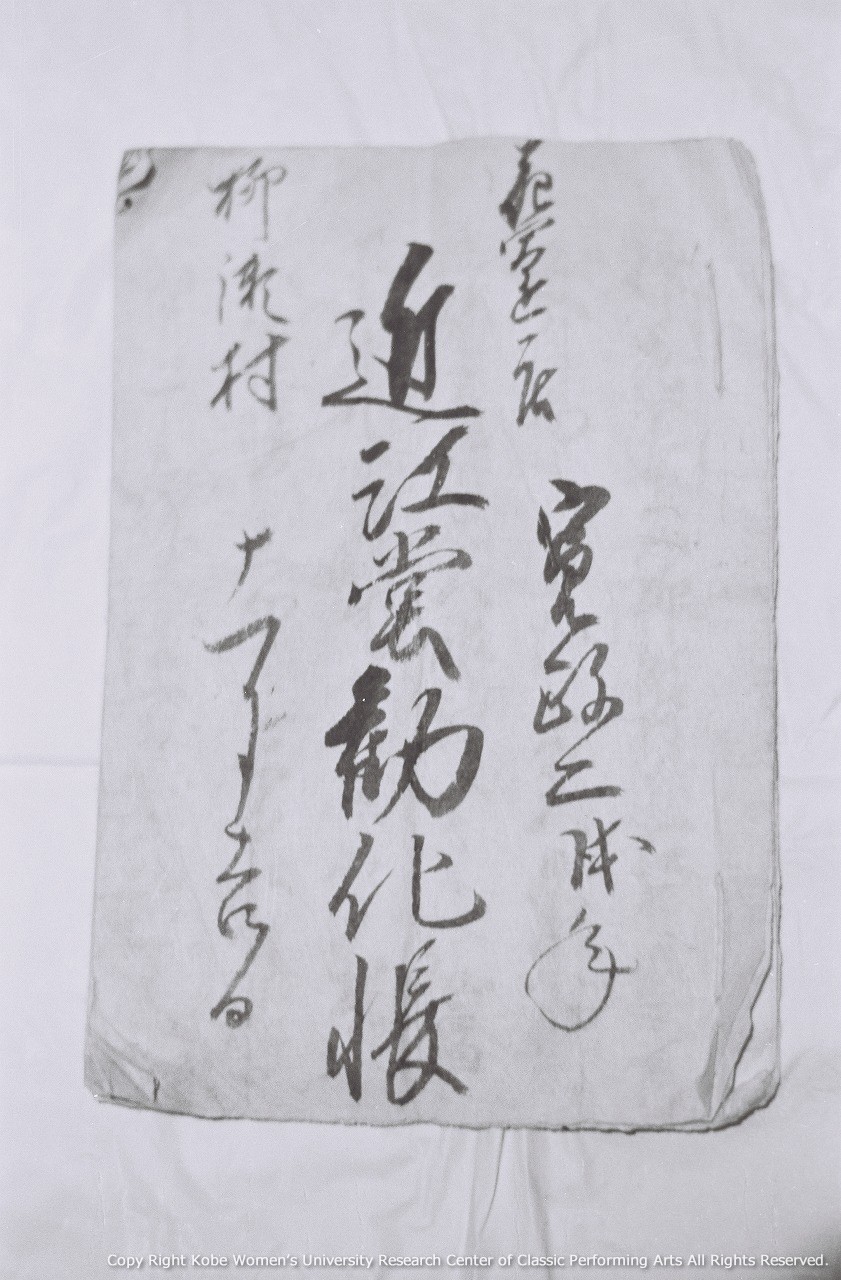 寛政二戌年
近江堂勧化帳
柳瀬村
十一月吉日
Copy Right Kobe Women's University Research Center of Classic Performing Arts All Rights Reserved.